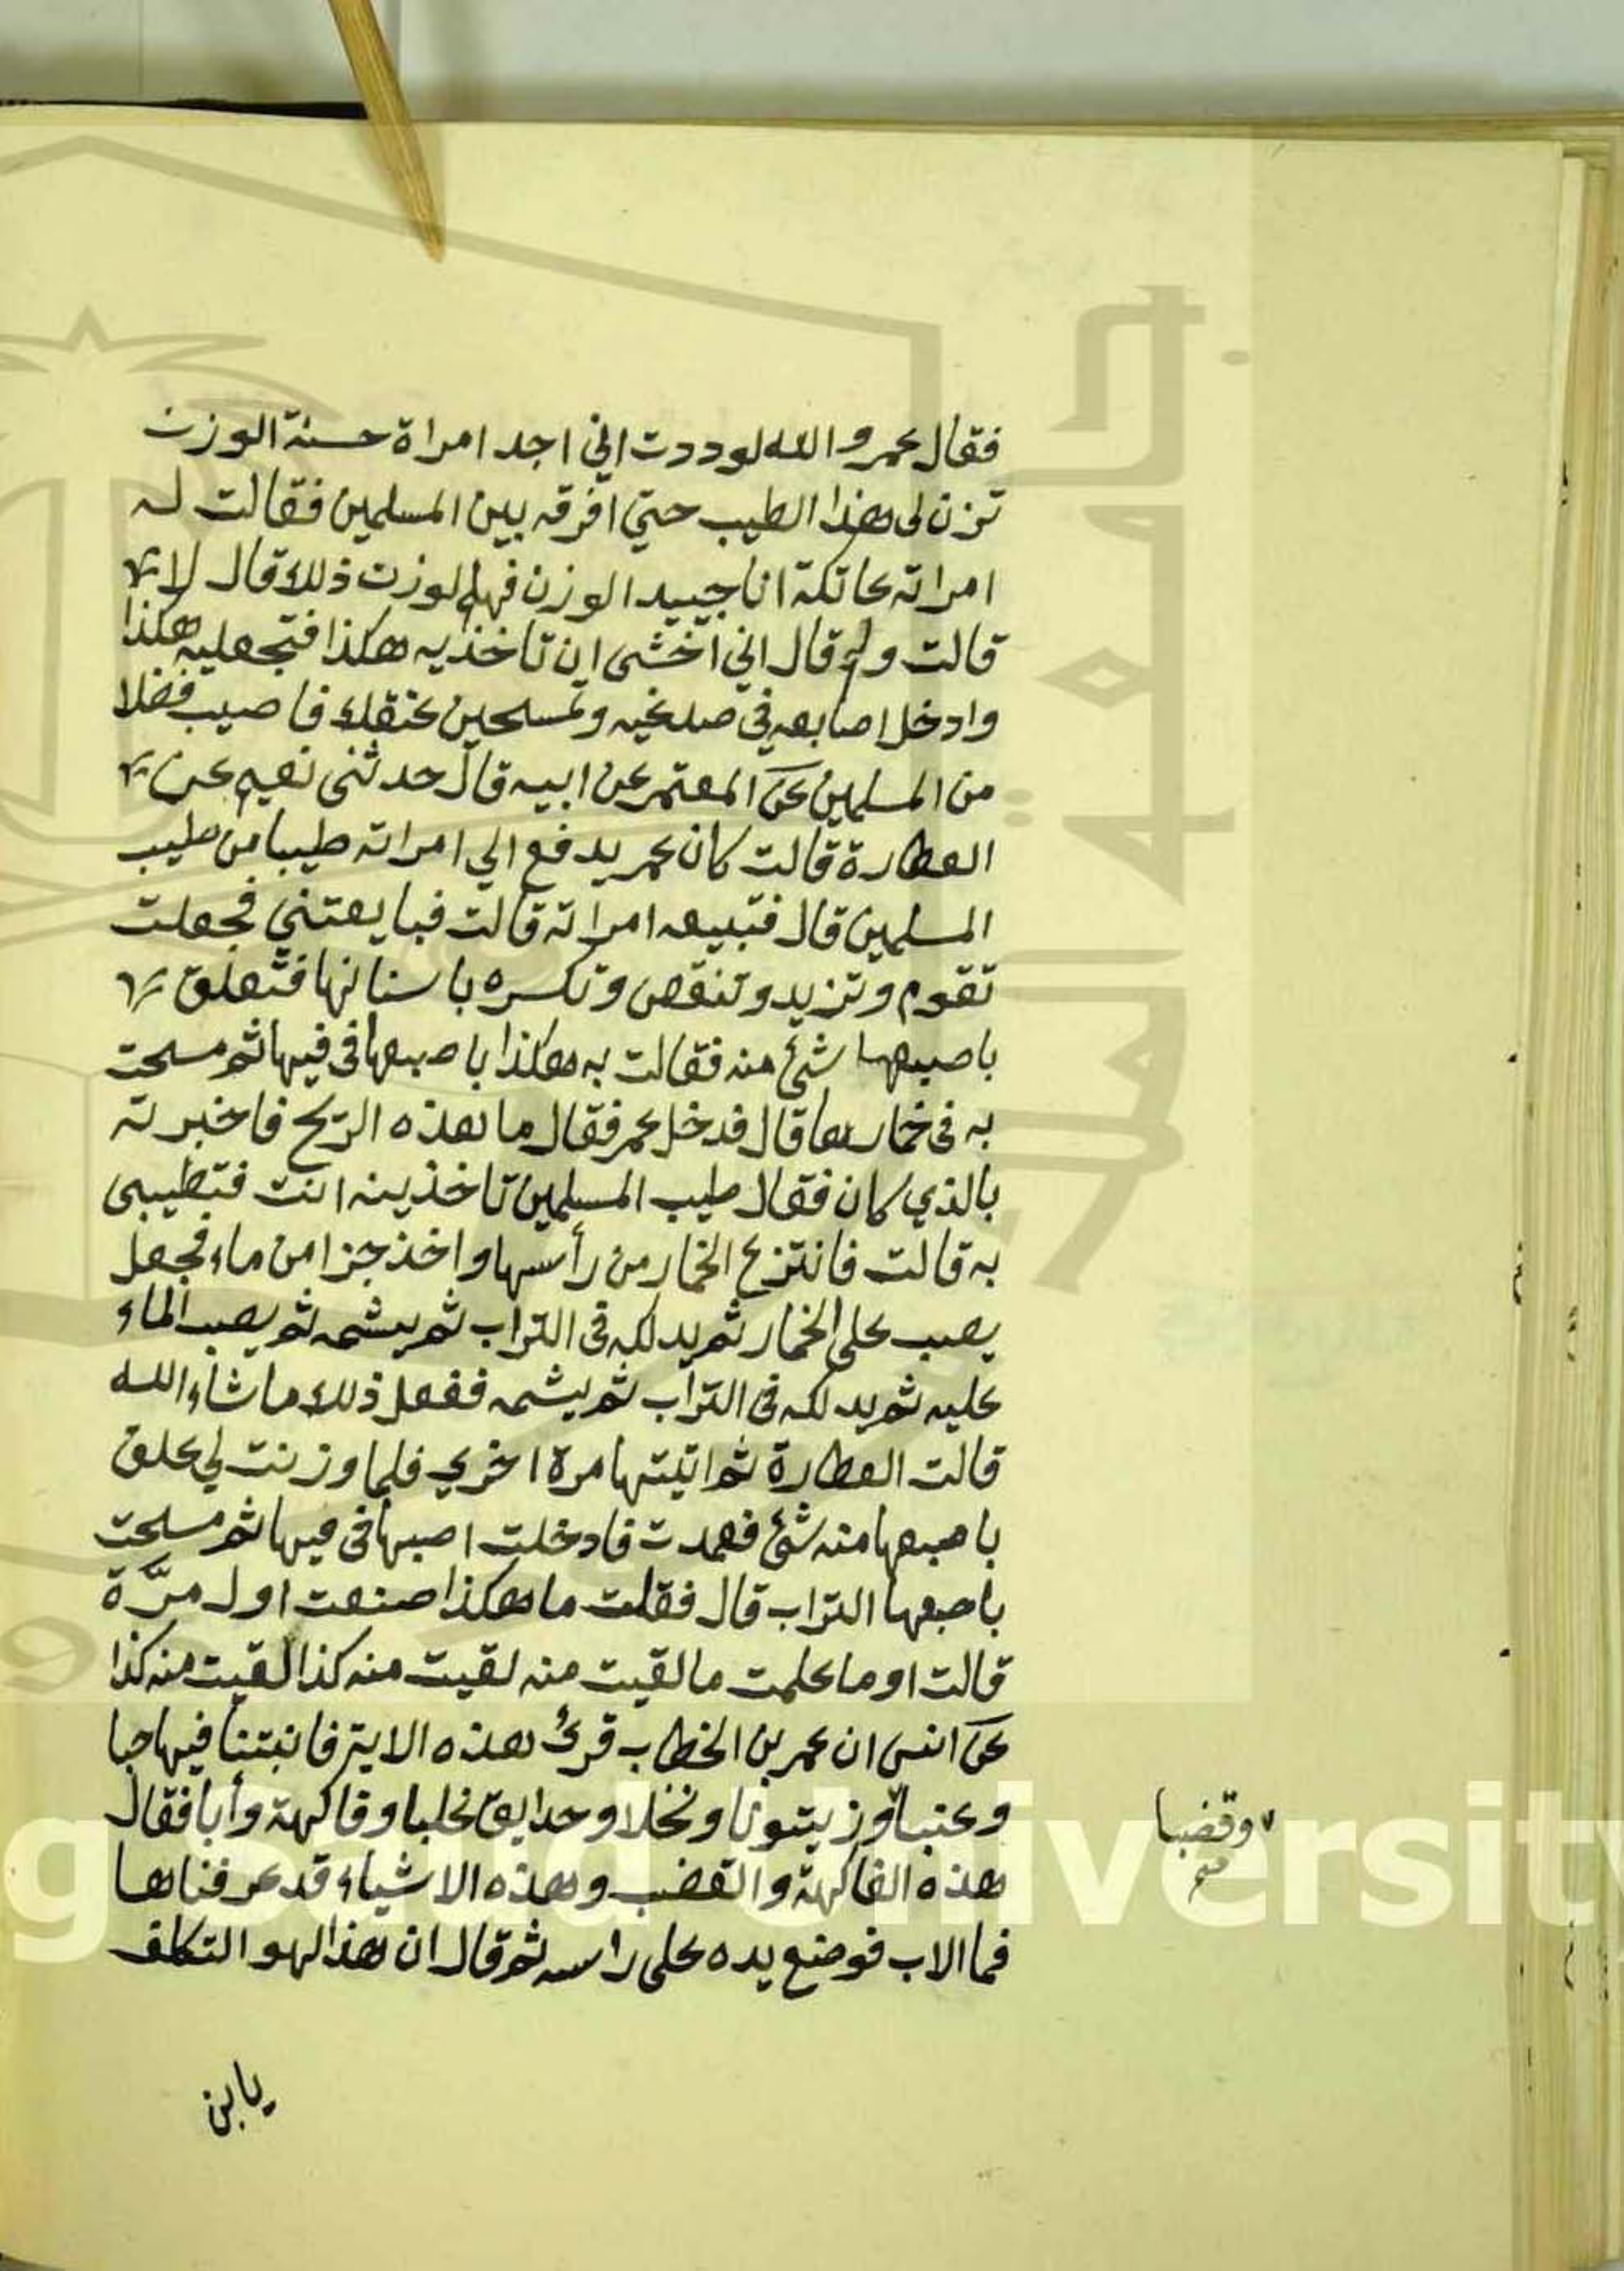 فقال عمر والله لوددت اني اجد امراة حسنة الوزن
تزن لي هذا الطيب حتي افرقه بين المسلمين فقالت له
امراته عاتكة انا جييد الوزن فهلم لوزن ذلك قال لا
قالت ولم قال اني اخشى ان تاخذيه هكذا فتجعليه هكذا
وادخل اصابعه في صدغيه وتمسحين عنقك فاصيب فضلا
من المسلمين عن المعتمر عن ابيه قال حدثنى نعيم عن
العطارة قالت كان عمر يدفع الي امراته طيبا من طيب
المسلمين قال فتبيعه امراته قالت فبايعتني فجعلت
تقوم وتزيد وتنقص وتكسره باسنانها فتعلق
باصبعها شئ منه فقالت به هكذا باصبعها في فيها ثم مسحت
به فى خمارها قال فدخل عمر فقال ما هذه الريح فاخبرته
بالذي كان فقال طيب المسلمين تاخذينه انت فتطيبى
به قالت فانتزع الخمار من رأسها واخذ جزا من ماء فجعل
يصب على الخمار ثم يدلكه فى التراب ثم يشمه ثم يصب الماء
عليه ثم يدلكه فى التراب ثم يشمه ففعل ذلك ماشاء الله
قالت العطارة ثم اتيتها مرة اخري فلما وزنت لي علق
باصبعها منه شئ فعمدت فادخلت اصبها فى فيها ثم مسحت
باصبعها التراب قال فقلت ما هكذا صنعت اول مرّة
قالت او ما علمت ما لقيت منه لقيت منه كذا لقيت منه كذا
عن انس ان عمر بن الخطاب قرئ هذه الاية فانبتنا فيها حبا
وعنبا وزيتونا ونخلا وحدايق غلبا وفاكهة وأبا فقال
وقضبا
صح
هذه الفاكهة والقضب وهذه الاشياء قد عرفناها
فما الاب فوضع يده على راسه ثم قال ان هذا لهو التكلف
يابن